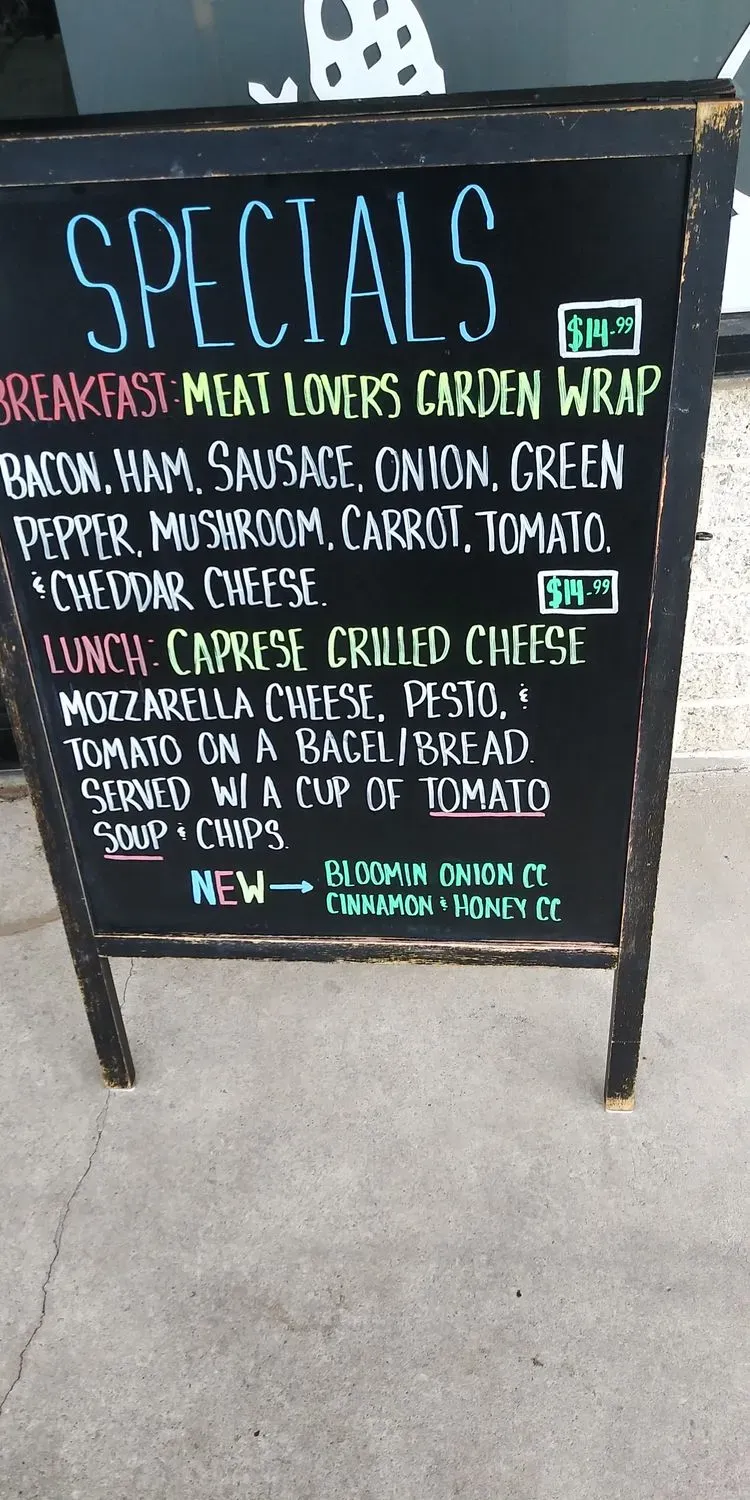 SPECIALS
$14.99
BREAKFAST: MEAT LOVERS GARDEN WRAP
BACON, HAM, SAUSAGE, ONION, GREEN
PEPPER, MUSHROOM, CARROT, TOMATO,
& CHEDDAR CHEESE.
$14.99
LUNCH: CAPRESE GRILLED CHEESE
MOZZARELLA CHEESE, PESTO, &
TOMATO ON A BAGEL/BREAD.
SERVED W/ A CUP OF TOMATO
SOUP & CHIPS.
NEW → BLOOMIN ONION CC
CINNAMON & HONEY CC